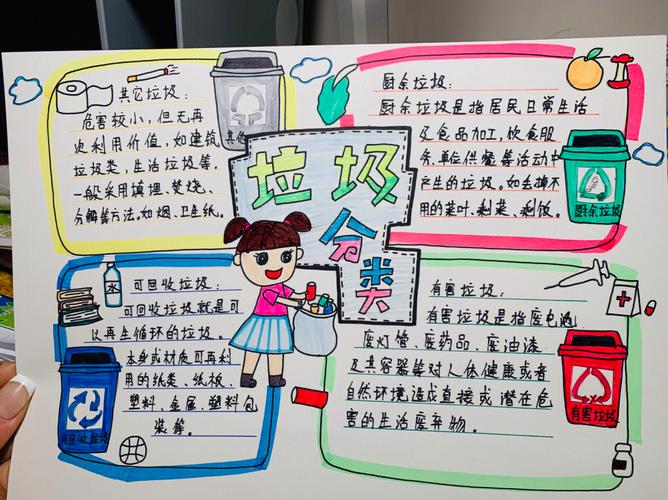 垃圾
分类
其它垃圾：
危害较小，但无再
次利用价值，如建筑
垃圾类，生活垃圾等，
一般采用填埋、焚烧、
分解等方法。如烟、卫生纸。
其他
厨余垃圾：
厨余垃圾是指居民日常生活
及食品加工，饮食服
务，单位供餐等活动中
产生的垃圾。如去掉不
用的菜叶、剩菜、剩饭。
厨余垃圾
可回收垃圾：
可回收垃圾就是可
以再生循环的垃圾。
本身或材质可再利
用的纸类、纸板、
塑料、金属、塑料包
装等。
水
可回收垃圾
有害垃圾：
有害垃圾是指废电池
废灯管、废药品、废油漆
及其容器等对人体健康或者
自然环境造成直接或潜在危
害的生活废弃物。
有害垃圾